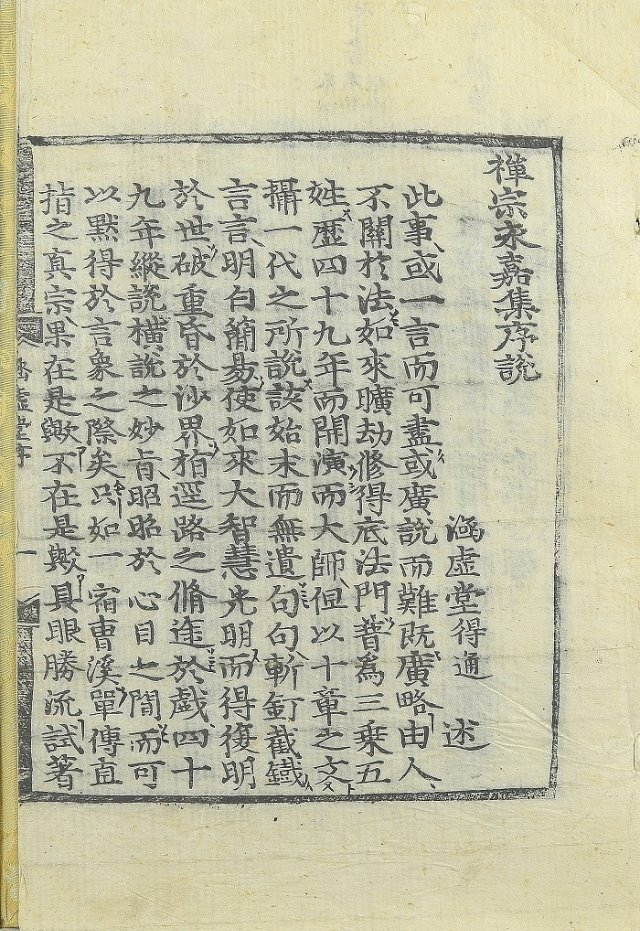 禪宗永嘉集序說
涵虛堂得通 述
此事或一言而可盡或廣說而難旣廣略由人
不關於法如來曠劫修得底法門普爲三乘五
姓歷四十九年而開演而大師但以十章之文
攝一代之所說該始末而無遺句句斬釘截鐵
言言明白簡易使如來大智慧光明而得復明
於世破重昏於沙界指逕路之脩途於戲四十
九年縱說橫說之妙旨昭昭於心目之間而可
以默得於言象之際矣只如一宿曹溪單傳直
指之眞宗果在是歟不在是歟具眼勝流試著